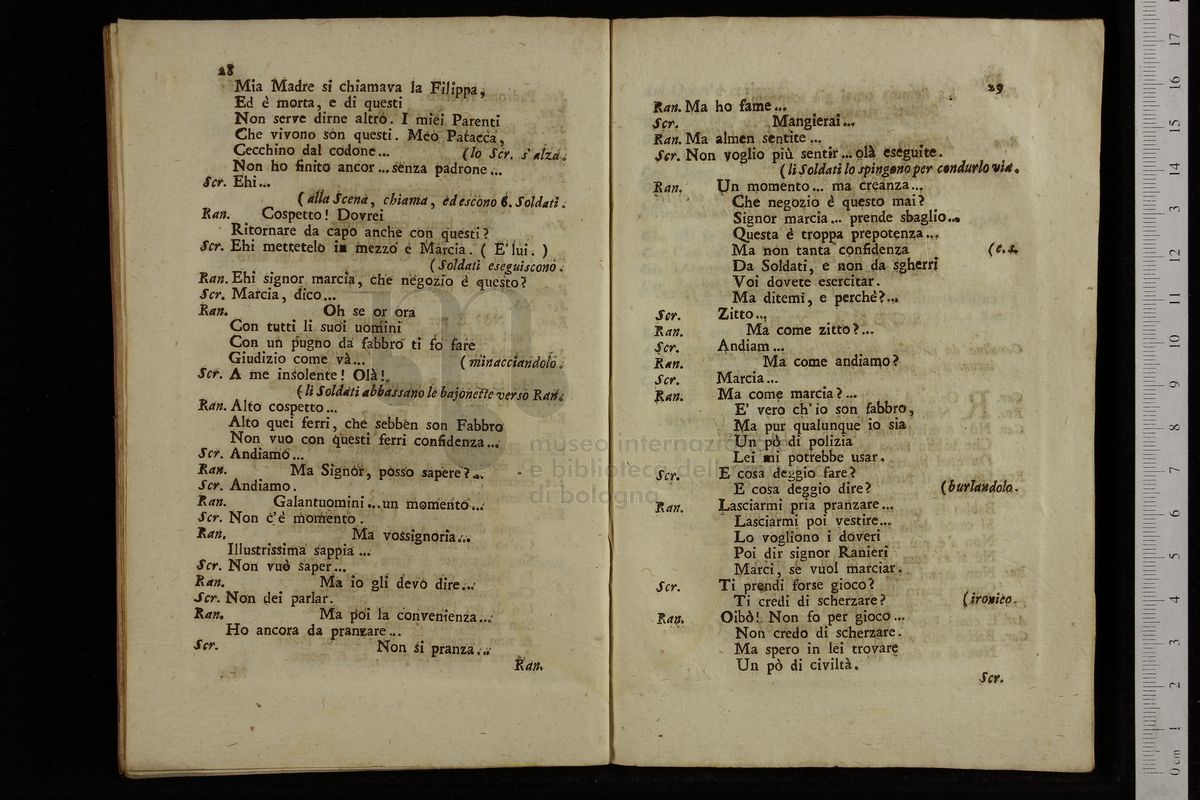 28
Mia Madre si chiamava la Filippa,
Ed è morta, e di questi
Non serve dirne altro. I miei Parenti
Che vivono son questi. Meo Patacca,
Cecchino dal codone... (lo Scr. s'alza.
Non ho finito ancor... senza padrone...
Scr. Ehi...
(alla Scena, chiama, ed escono 6. Soldati.
Ran. Cospetto! Dovrei
Ritornare da capo anche con questi?
Scr. Ehi mettetelo in mezzo e Marcia. ( E' lui. )
(Soldati eseguiscono.
Ran. Ehi signor marcia, che negozio è questo?
Scr. Marcia, dico...
Ran. Oh se or ora
Con tutti li suoi uomini
Con un pugno da fabbro ti fo fare
Giudizio come và... (minacciandolo.
Scr. A me insolente! Olà!
(li Soldati abbassano le bajonette verso Ran.
Ran. Alto cospetto...
Alto quei ferri, che sebben son Fabbro
Non vuo con questi ferri confidenza...
Scr. Andiamo...
Ran. Ma Signor, posso sapere?...
Scr. Andiamo.
Ran. Galantuomini... un momento...
Scr. Non c'è momento.
Ran. Ma vossignoria...
Illustrissima sappia...
Scr. Non vuò saper...
Ran. Ma io gli devo dire...
Scr. Non dei parlar.
Ran. Ma poi la convenienza...
Ho ancora da pranzare...
Scr. Non si pranza...
Ran.
29
Ran. Ma ho fame...
Scr. Mangierai...
Ran. Ma almen sentite...
Scr. Non voglio più sentir... olà eseguite.
(li Soldati lo spingono per condurlo via.
Ran. Un momento... ma creanza...
Che negozio è questo mai?
Signor marcia... prende sbaglio...
Questa è troppa prepotenza...
Ma non tanta confidenza (c.s.
Da Soldati, e non da sgherri
Voi dovete esercitar.
Ma ditemi, e perchè?...
Scr. Zitto...
Ran. Ma come zitto?...
Scr. Andiam...
Ran. Ma come andiamo?
Scr. Marcia...
Ran. Ma come marcia?...
E' vero ch'io son fabbro,
Ma pur qualunque io sia
Un pò di polizia
Lei mi potrebbe usar.
Scr. E cosa deggio fare?
E cosa deggio dire? (burlandolo.
Ran. Lasciarmi pria pranzare...
Lasciarmi poi vestire...
Lo vogliono i doveri
Poi dir signor Ranieri
Marci, se vuol marciar.
Scr. Ti prendi forse gioco?
Ti credi di scherzare? (ironico.
Ran. Oibò! Non fo per gioco...
Non credo di scherzare.
Ma spero in lei trovare
Un pò di civiltà.
Scr.
museo internazio
e biblioteca del
di bologna
0 cm 1 2 3 4 5 6 7 8 9 10 11 12 13 14 15 16 17